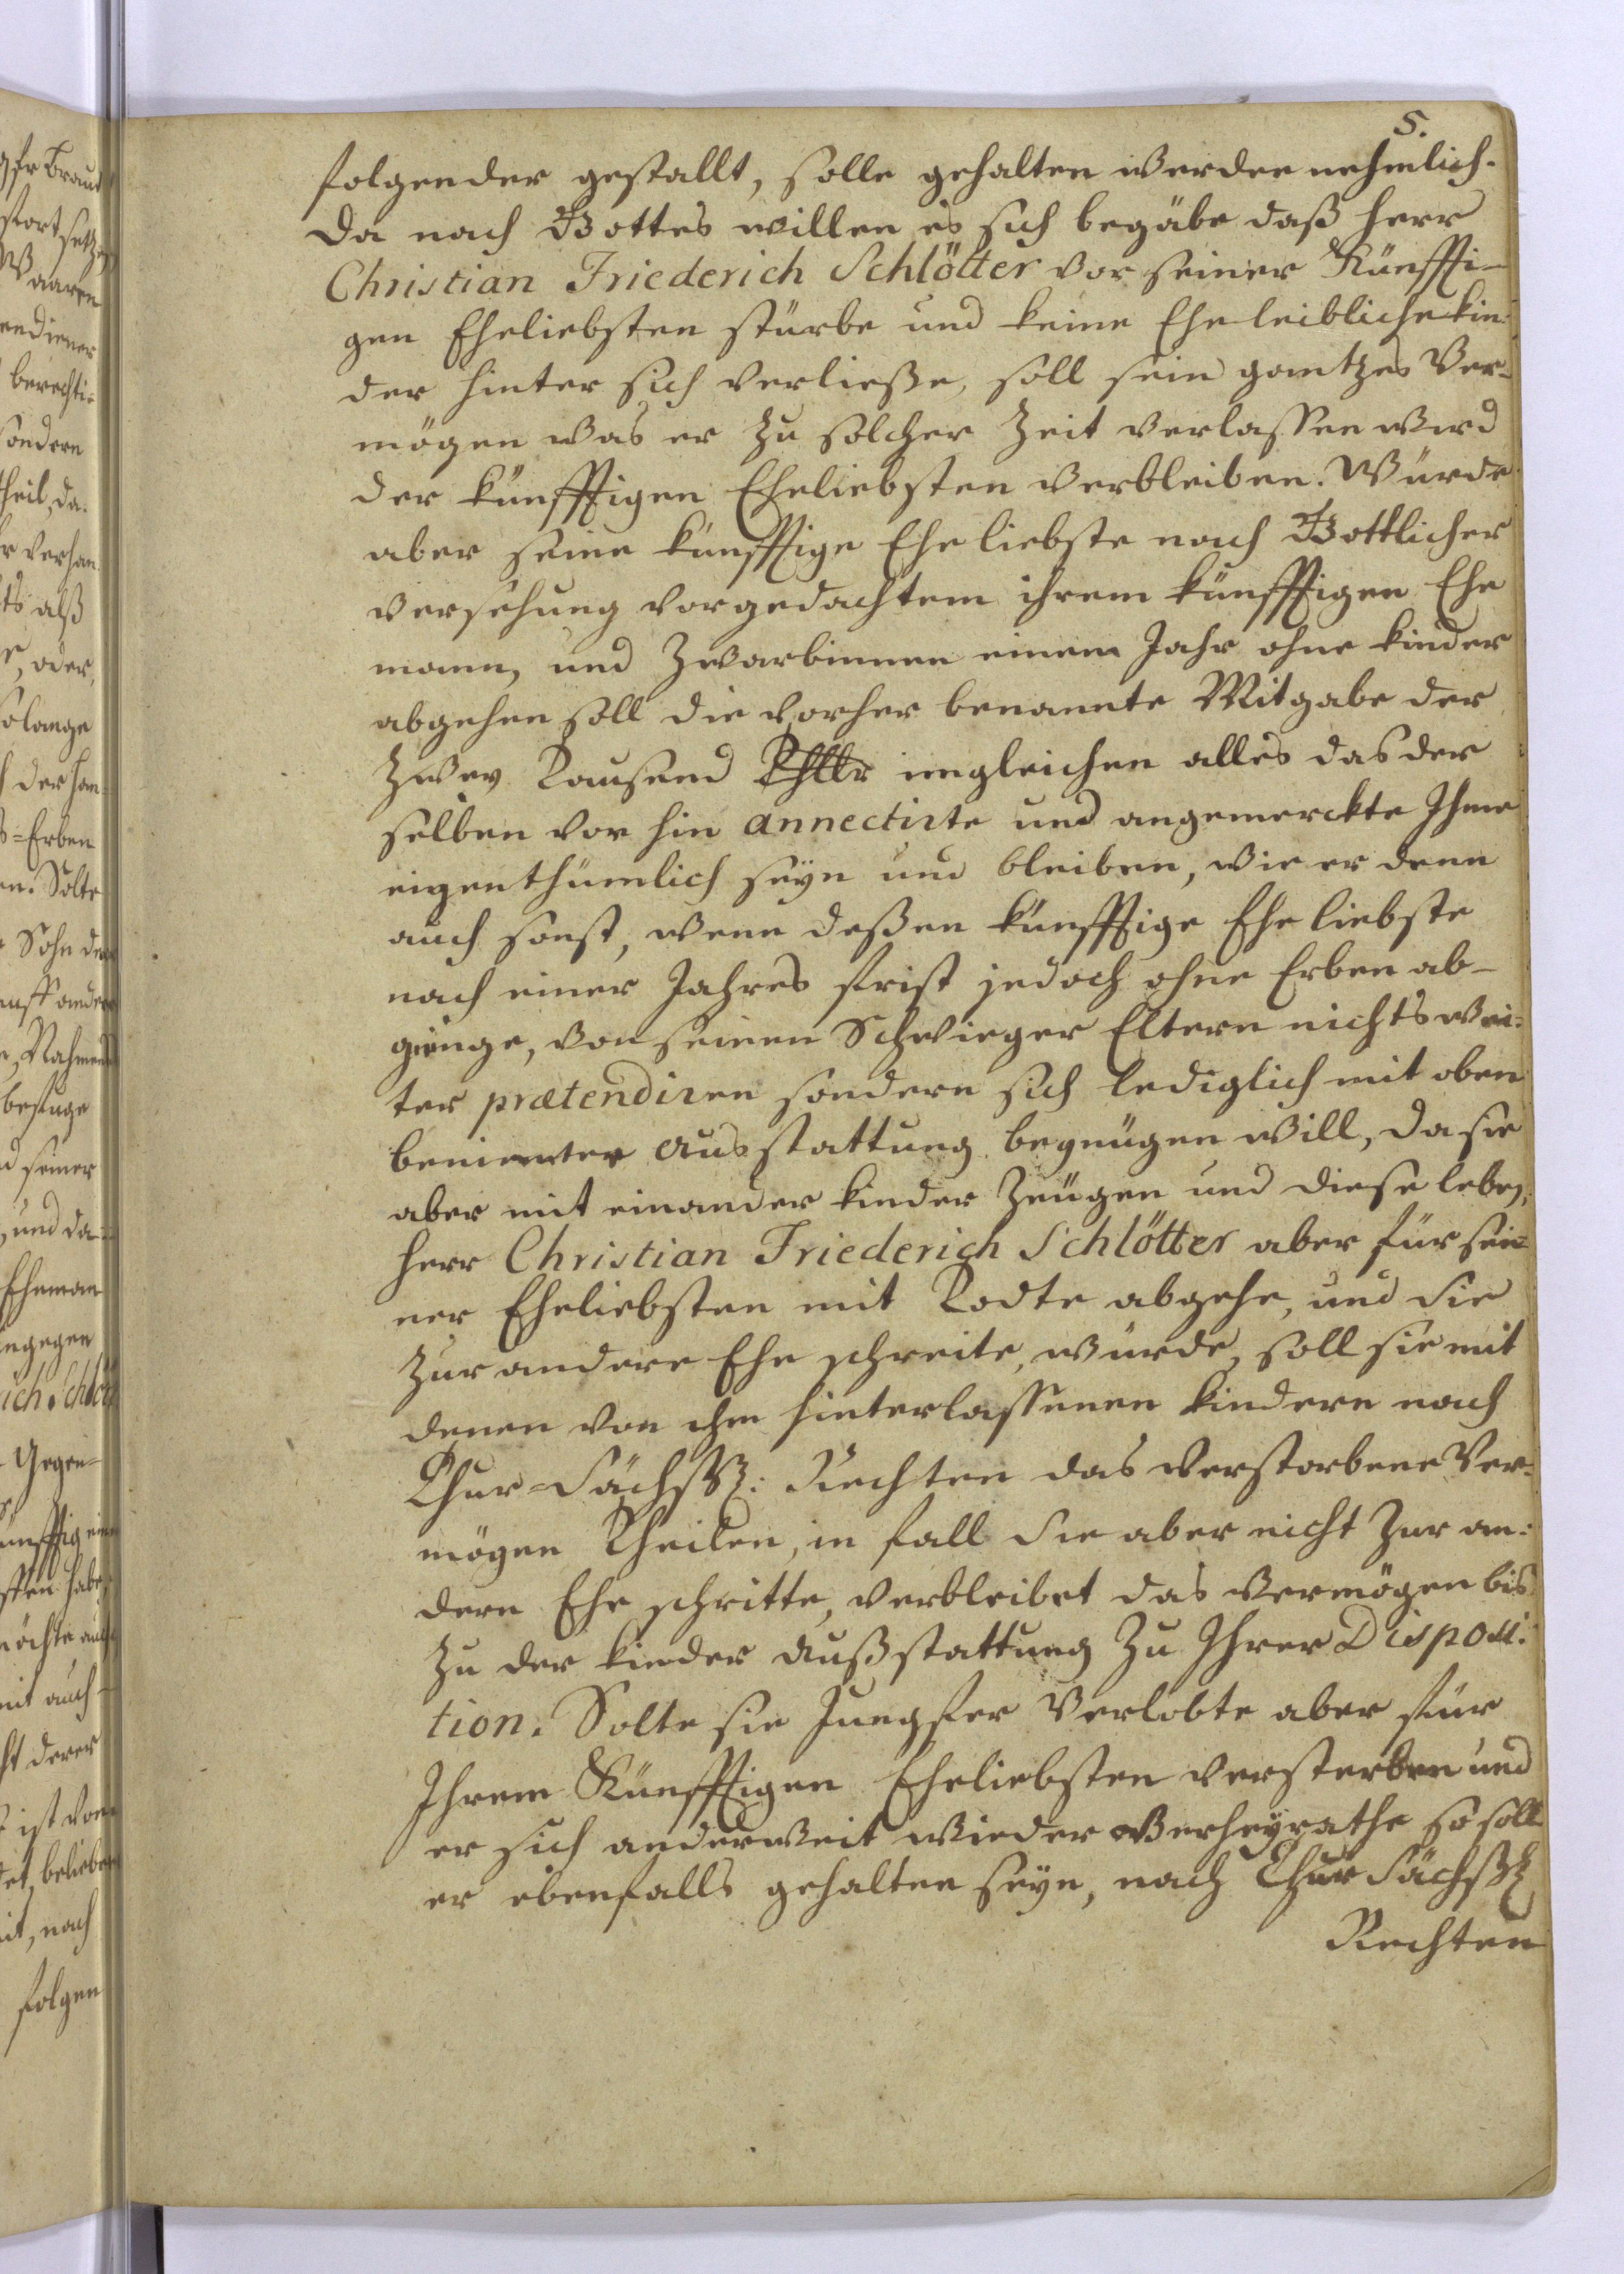 5.
folgender gestallt, solle gehalten werden nehmlich.
Da nach Gottes willen es sich begäbe daß Herr
Christian Friederich Schlötter vor seiner Künffti-
gen Eheliebsten stürbe und keine Eheleibliche kin-
der hinter sich verließe, soll sein gantzes Ver-
mögen was er zu solcher Zeit verlaßen wird
der künfftigen Eheliebsten verbleiben. Würde
aber seine künfftige Eheliebste nach Gottlicher
versehung vorgedachtem ihrem künfftigen Ehe
mann, und Zwarbinnen einem Jahr ohne kinder
abgehen soll die vorher benannte Mitgabe der
Zwey Tausend Thlr imgleichen alles das der
selben vor hin annectirte und angemerckte Ihme
eigenthümlich seyn und bleiben, wie er denn
auch sonst, wenn deßen künfftige Eheliebste
nach einer Jahres frist jedoch ohne Erben ab-
gienge, von seinen Schwieger Eltern nichts wei-
ter prætendiren sondern sich lediglich mit oben
benienter ausstattung begnügen will, da sie
aber mit einander kinder Zeugen und diese leben,
Herr Christian Friederich Schlötter aber für sei-
ner Eheliebsten mit Todte abgehe, und Sie
zur andere Ehe schreite, würde, soll sie mit
denen von ihm hinterlaßenen kindern nach
Chur-Sächß: Rechten das verstorbene Ver-
mögen Theilen, in fall Sie aber nicht zur an-
dern Ehe schritte, verbleibet das Vermögen bis
zu der kinder Außstattung zu Ihrer Disposi-
tion. Solte sie Jungfer Verlobte aber für
Ihrem Künfftigen Eheliebsten versterben und
er sich anderweit wieder verheyrathe so soll
er ebenfalls gehalten seyn, nach Chur Sächß
Rechten